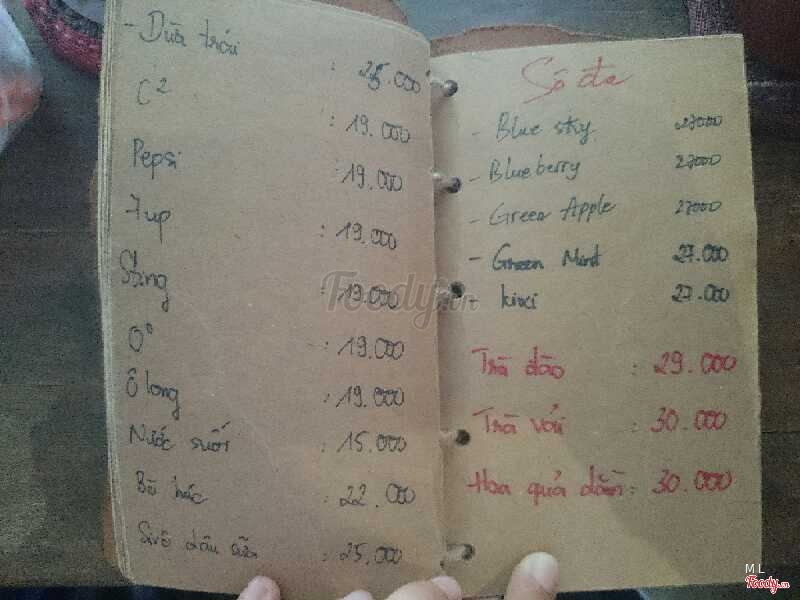 - Dừa trái : 25.000
C2 : 19.000
Pepsi : 19.000
7up : 19.000
Sting : 19.000
0° : 19.000
Ô long : 19.000
Nước suối : 15.000
Bò húc : 22.000
Sirô dâu sữa : 25.000
Sô đa
- Blue sky 27000
- Blueberry 27000
- Green Apple 27000
- Green Mint 27.000
- kiwi 27.000
Trà đào : 29.000
Trà vải : 30.000
Hoa quả dầm : 30.000
Foody.vn
ML
Foody.vn